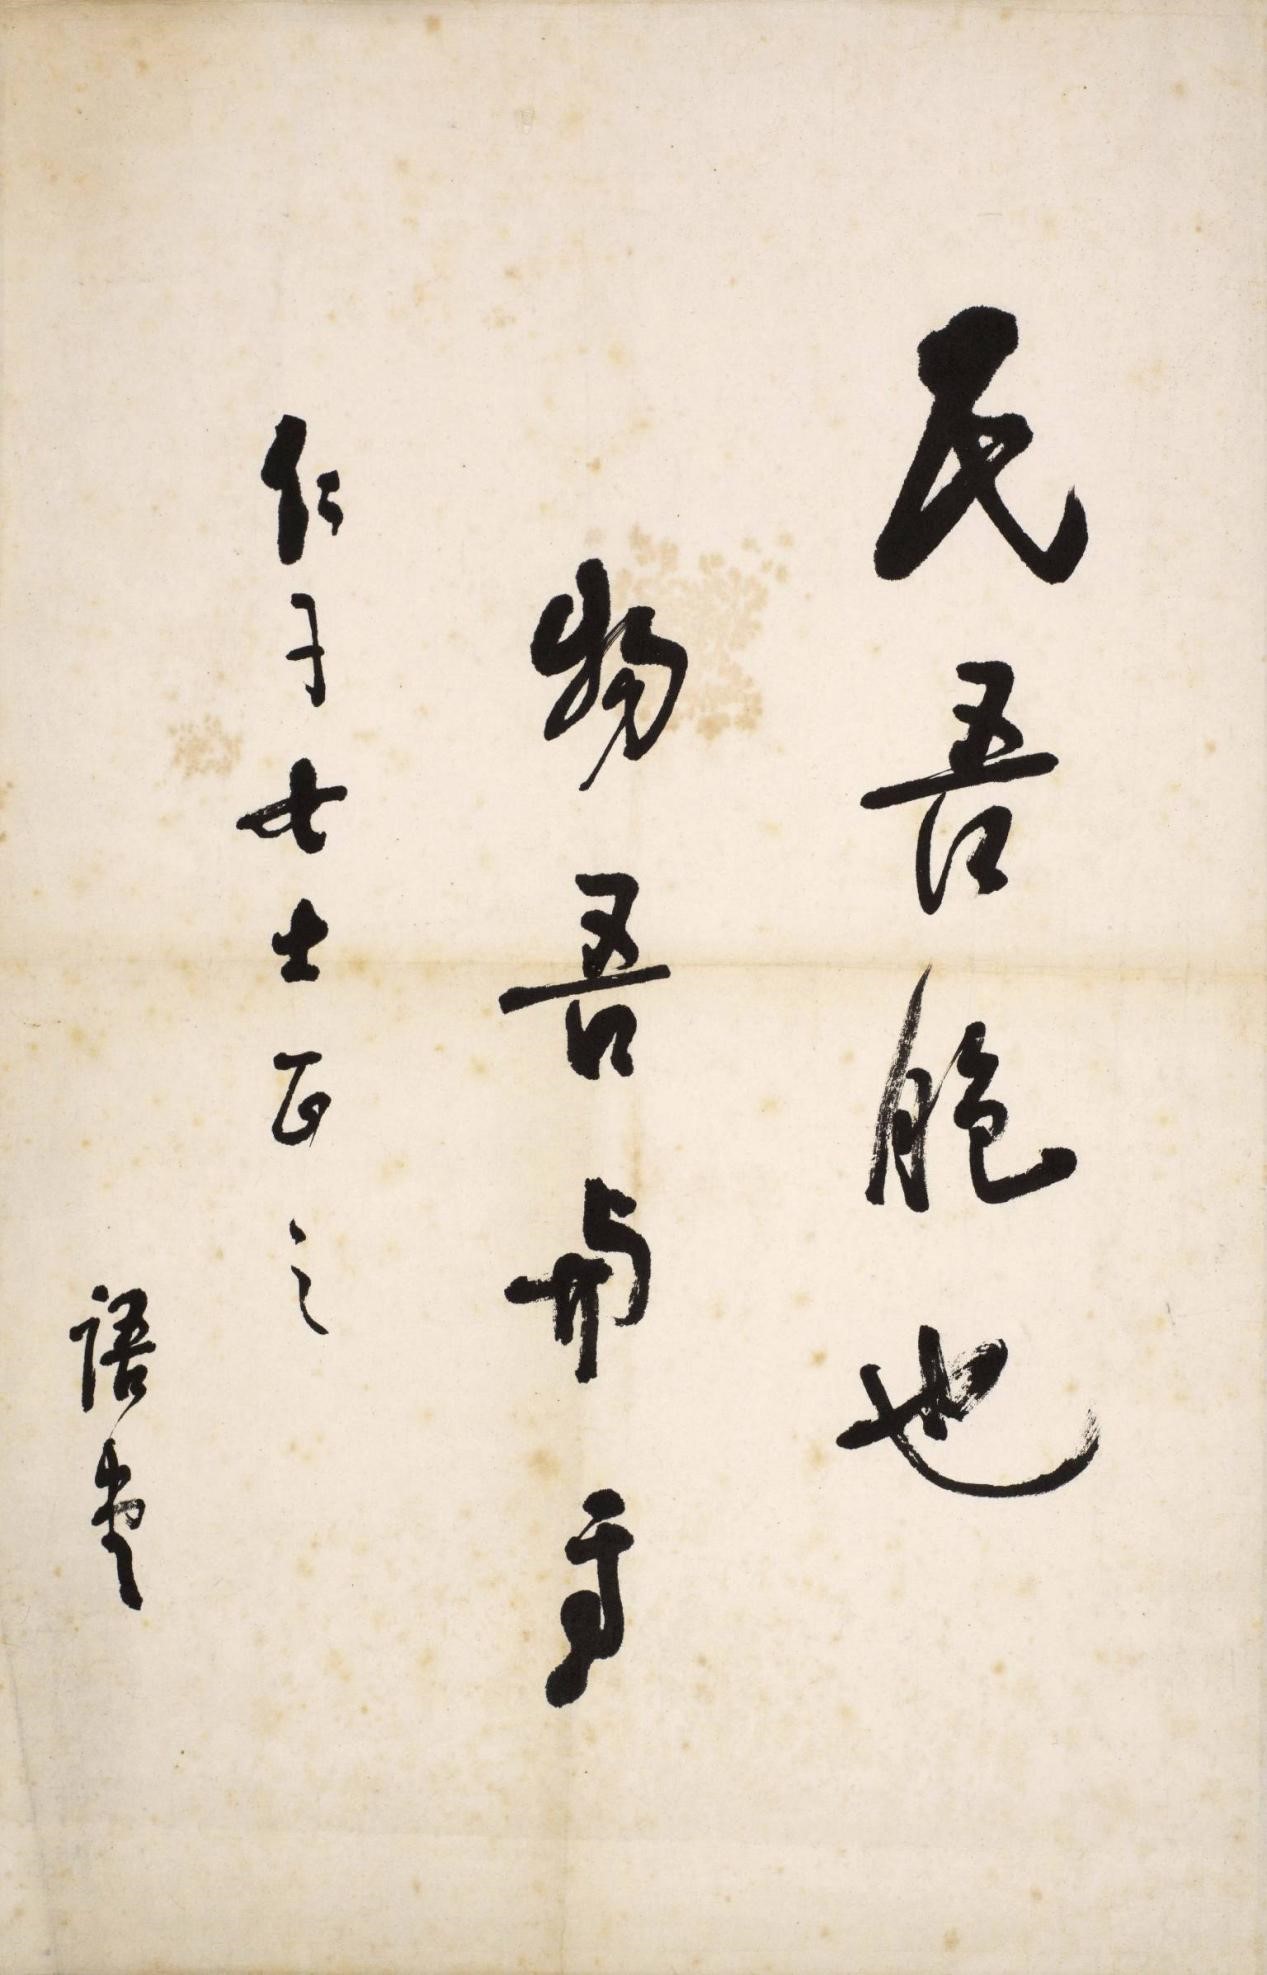 民吾胞也
物吾與焉
仁子女士正之
語堂